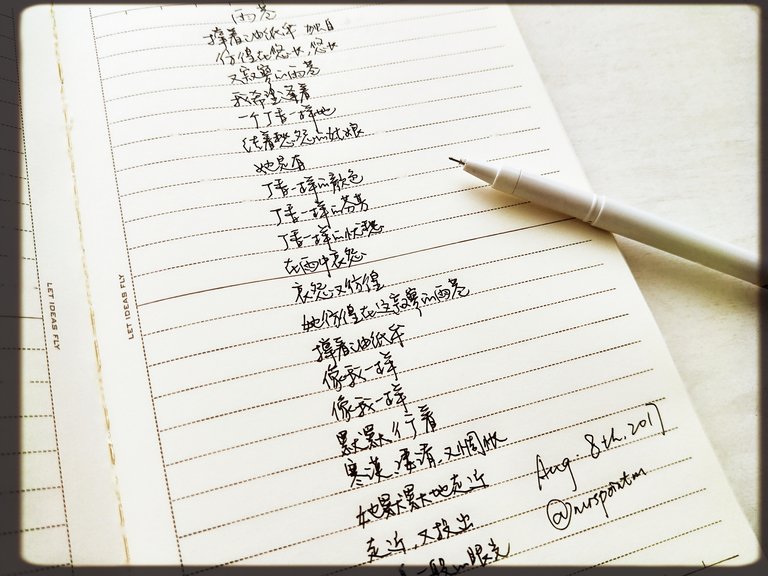 雨巷
撑着油纸伞 独自
彷徨在悠长,悠长
又寂寥的雨巷
我希望逢着
一个丁香一样地
结着愁怨的姑娘
她是有
丁香一样的颜色
丁香一样的芬芳
丁香一样的忧愁
在雨中哀怨
哀怨又彷徨
她彷徨在这寂寥的雨巷
撑着油纸伞
像我一样
像我一样
默默行着
寒漠,凄清,又惆怅
她默默地走近
走近,又投出
一般的眼光
Aug. 8th. 2017
LET IDEAS FLY
LET IDEAS FLY